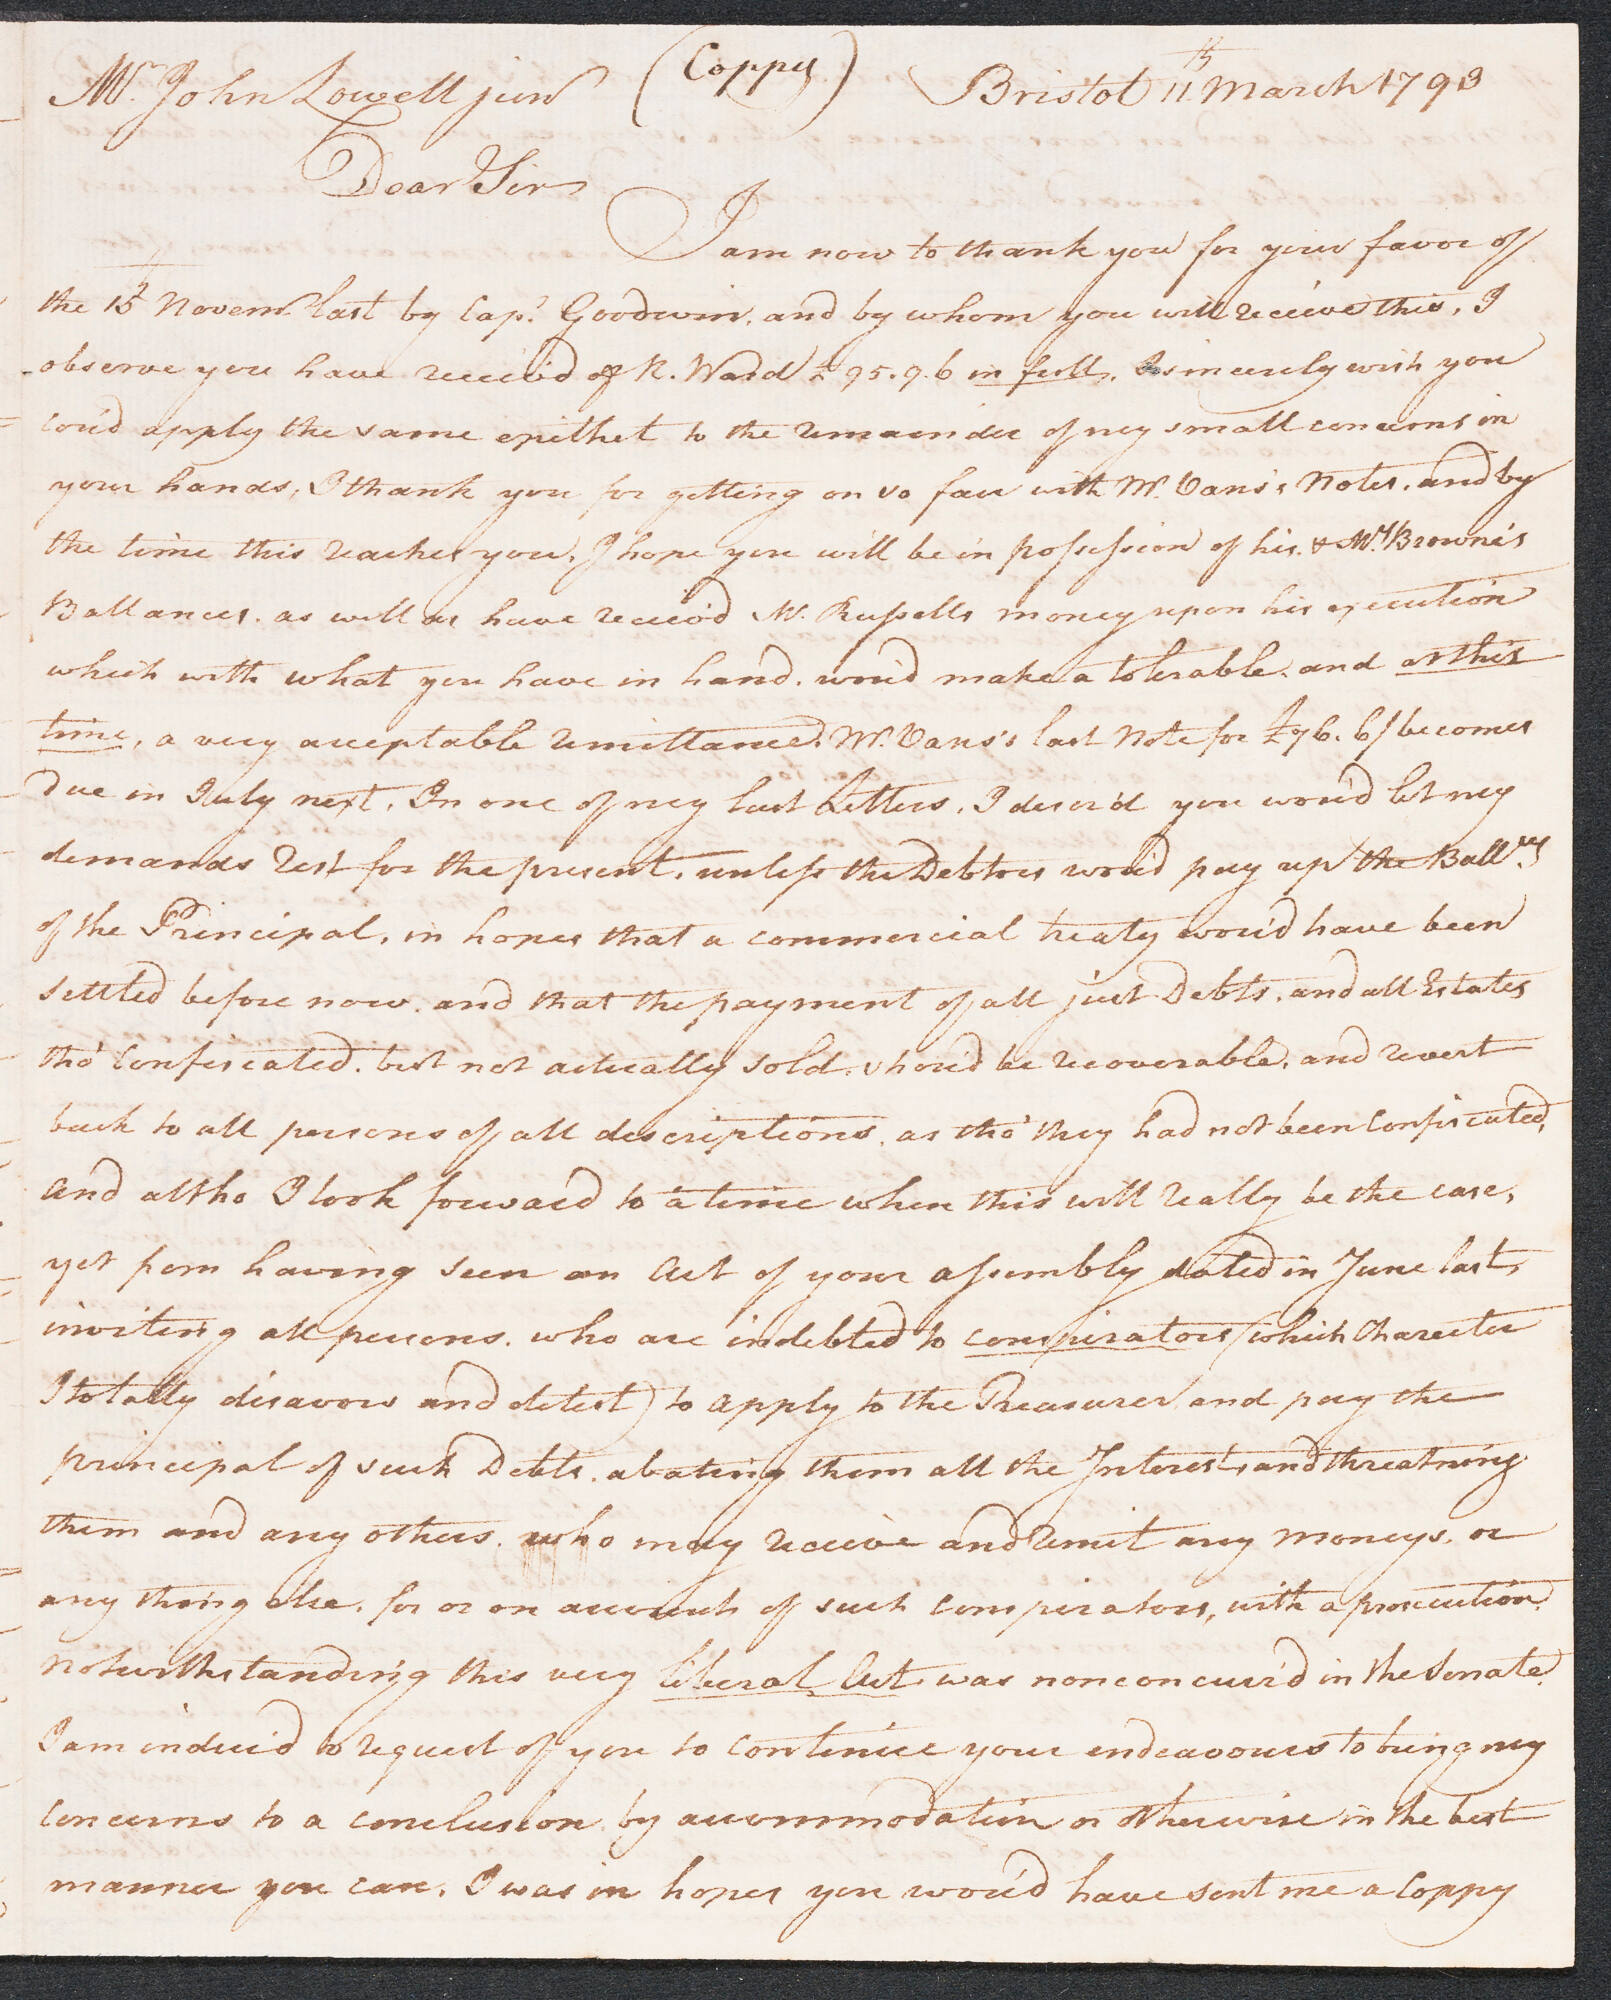 Mr. John Lowell junr (Coppy) Bristol 11th March 1793
Dear Sir
I am now to thank you for your favor of
the 15th Novemr. last by Capt. Goodwin, and by whom you will receive this, I
observe you have receiv'd of R. Ward £95.9.6 in full, I sincerely wish you
cou'd apply the same epithet to the remainder of my small concerns in
your hands, I thank you for getting on so far with Mr. Vans's Notes, and by
the time this reaches you, I hope you will be in possession of his & Mr. Browne's
Ballances, as well as have receiv'd Mr. Russells money upon his execution
which with what you have in hand, wou'd make a tolerable, and at this
time, a very acceptable remittance. Mr. Vans's last Note for £76.6/ becomes
due in July next, In one of my last Letters, I desir'd you wou'd let my
demands rest for the present, unless the Debtors wou'd pay up the Ballces
of the Principal, in hopes that a commercial treaty wou'd have been
settled before now, and that the payment of all just Debts, and all Estates
tho' Confiscated, but not actually sold, shou'd be recoverable, and revert
back to all persons of all descriptions, as tho' they had not been Confiscated,
and altho I look forward to a time when this will really be the case,
yet from having seen an Act of your assembly dated in June last,
inviting all persons, who are indebted to conspirators (which Charecter
I totally disavow and detest) to apply to the Treasurer and pay the
principal of such Debts, abating them all the Interest, and threatning
them and any others, who may receive and remit any moneys, or
any thing else, for or on account of such conspirators, with a prosecution,
notwithstanding this very liberal Act, was nonconcurr'd in the Senate,
I am induc'd to request of you to continue your endeavours to bring my
concerns to a conclusion, by accommodation or otherwise in the best
manner you can, I was in hopes you wou'd have sent me a Coppy